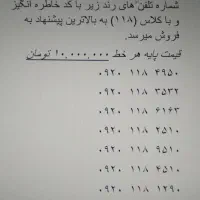 شماره تلفن های رند زیر با کد خاطره انگیز
و با کلاس (۱۱۸) به بالاترین پیشنهاد به
فروش میرسد.
قیمت پایه هر خط ۱۰,۰۰۰,۰۰۰ تومان
۰۹۲۰ ۱۱۸ ۴۹۵۰
۰۹۲۰ ۱۱۸ ۳۵۳۲
۰۹۲۰ ۱۱۸ ۶۱۶۳
۰۹۲۰ ۱۱۸ ۲۵۱۰
۰۹۲۰ ۱۱۸ ۹۵۱۰
۰۹۲۰ ۱۱۸ ۴۵۱۰
۰۹۲۰ ۱۱۸ ۱۲۹۰